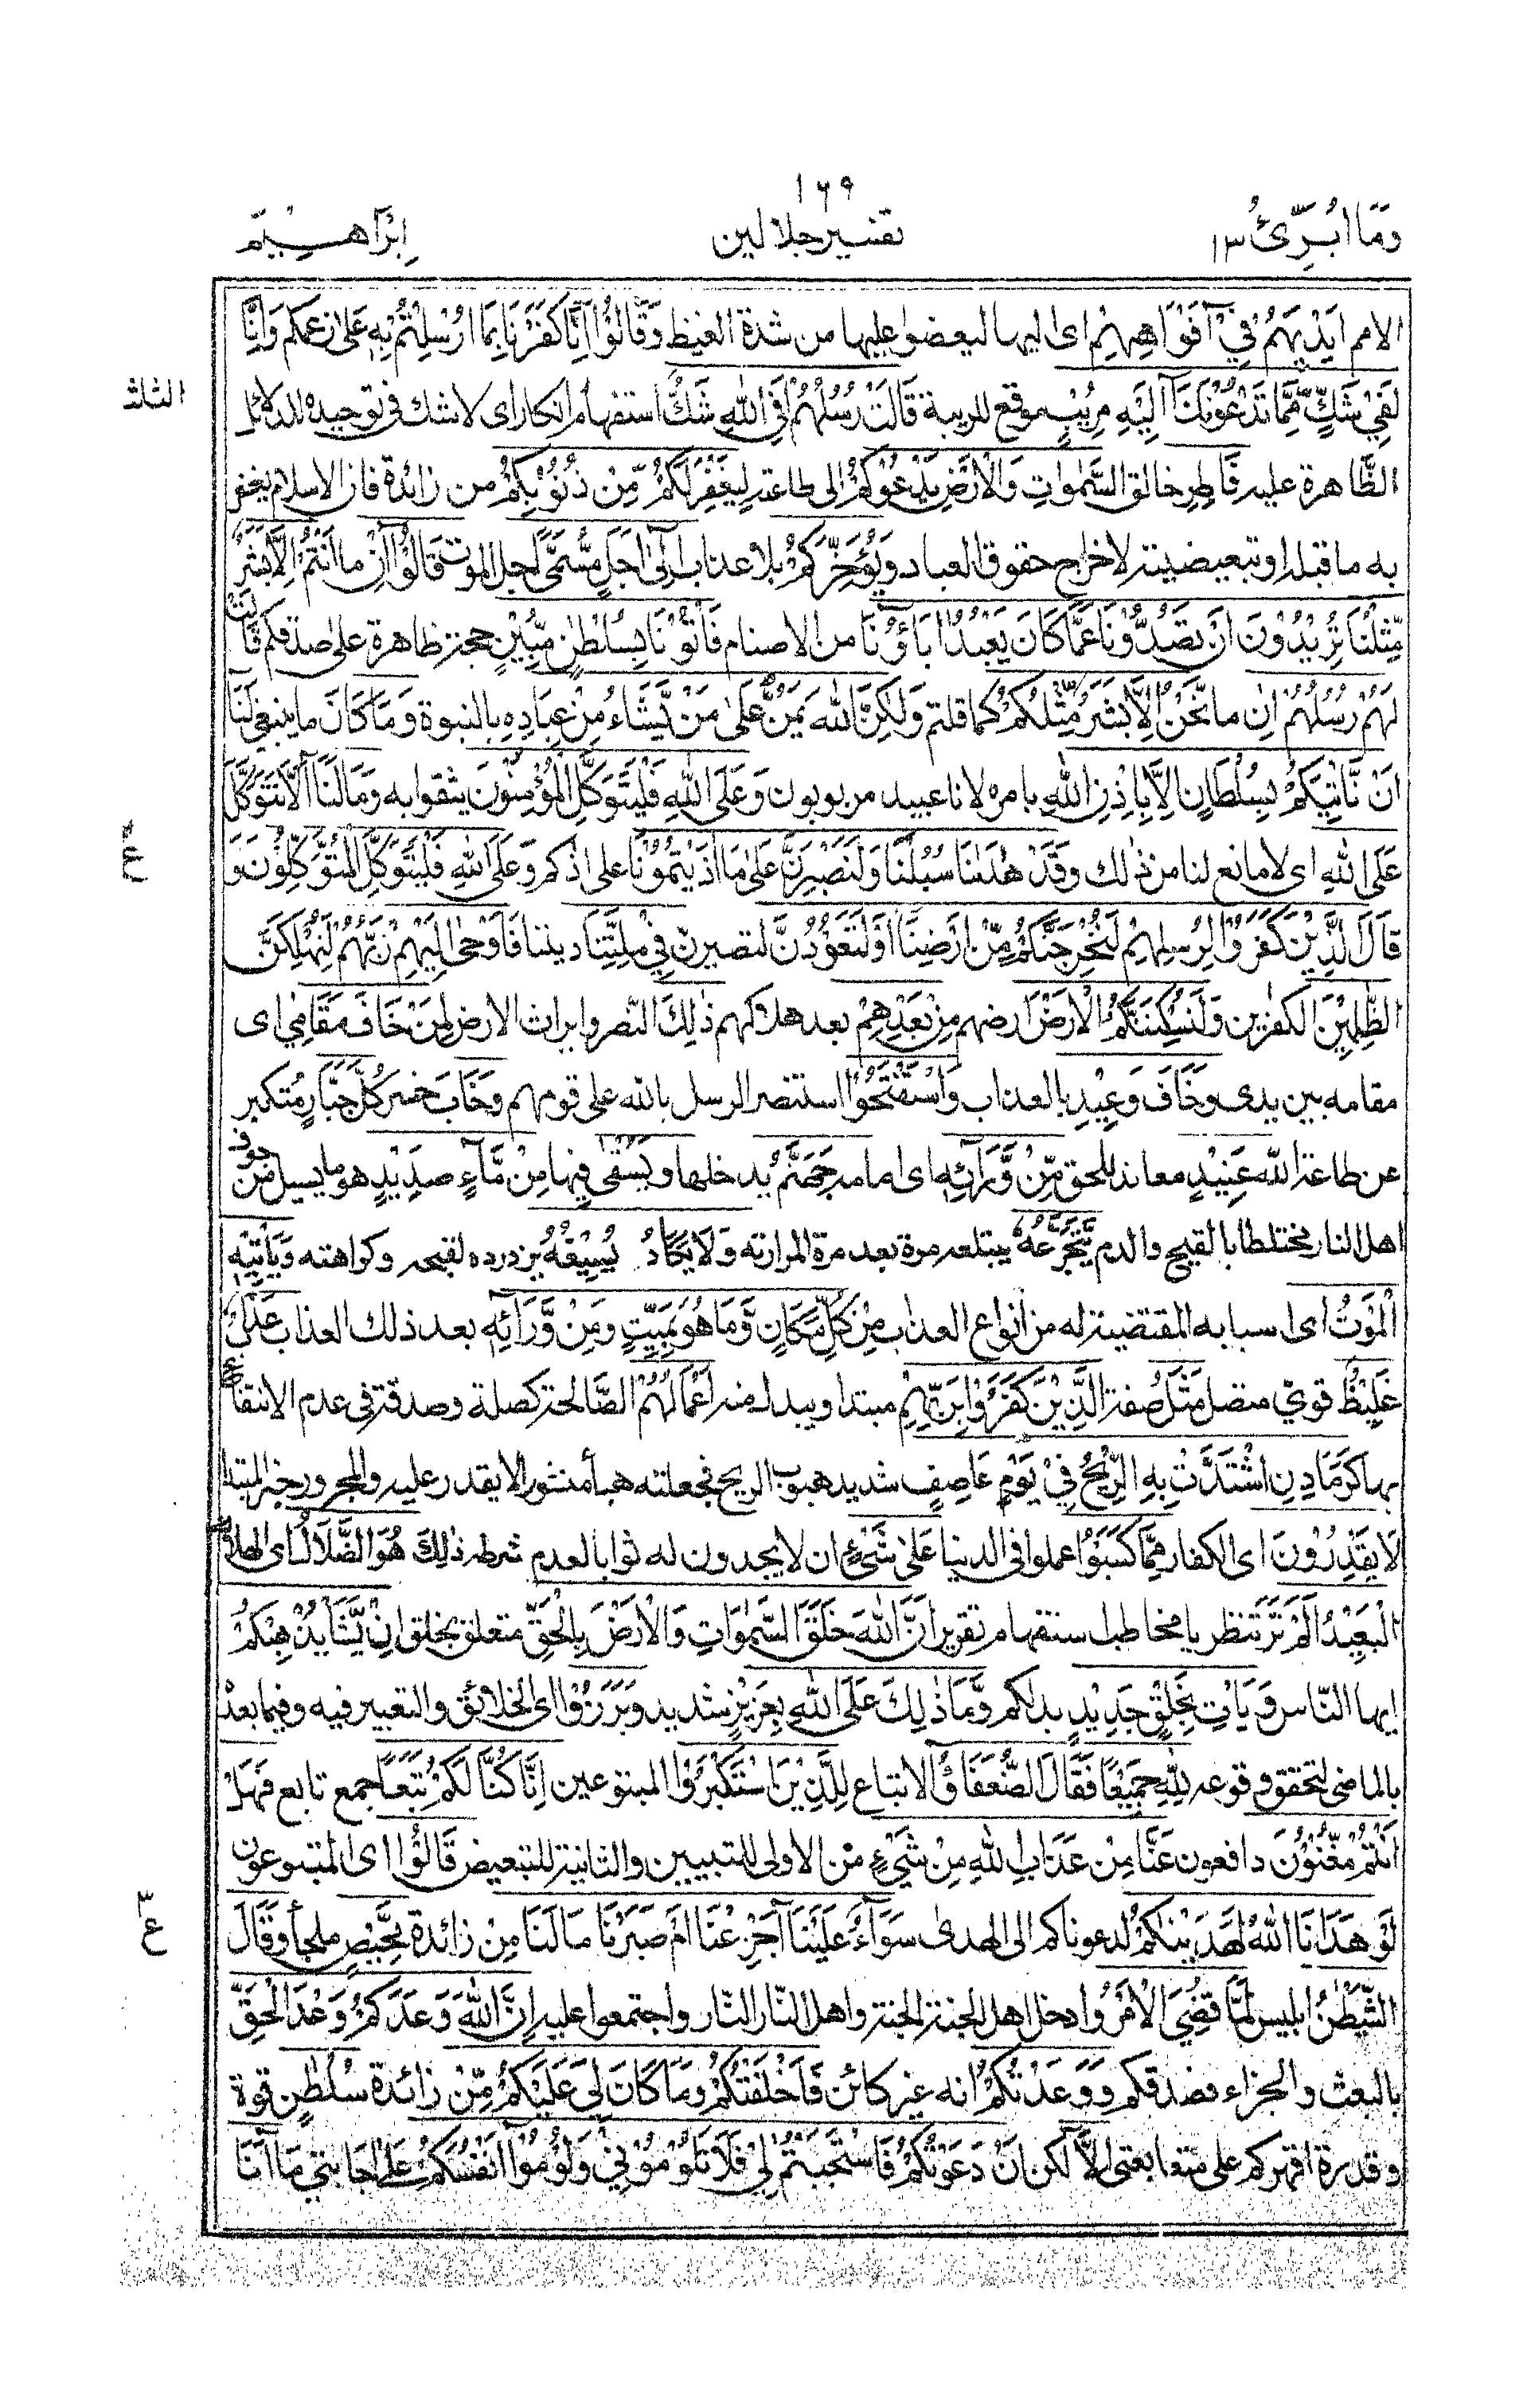 ١٦٩
وَمَا اُبَرِّئُ ١٣
تفسير جلالين
اِبْرٰهِيْم
الامم اَيْدِيَهُمْ فِيْٓ اَفْوَاهِهِمْ اى اليها ليعضوا عليها من شدة الغيظ وَقَالُوْٓا اِنَّا كَفَرْنَا بِمَا اُرْسِلْتُمْ بِهٖ على زعمكم وَاِنَّا
الثلث
لَفِيْ شَكٍّ مِّمَّا تَدْعُوْنَنَآ اِلَيْهِ مُرِيْبٍ موقع للريبة قَالَتْ رُسُلُهُمْ اَفِي اللهِ شَكٌّ استفهام انكار اى لا شك فى توحيده للدلائل
الظَّاهرة عليه فَاطِرِ خالق السَّمٰوٰتِ وَالْاَرْضِ يَدْعُوْكُمْ الى طاعته لِيَغْفِرَ لَكُمْ مِّنْ ذُنُوْبِكُمْ من زائدة فان الاسلام يغفر
به ما قبله او تبعيضية لاخراج حقوق العباد وَيُؤَخِّرَكُمْ بلا عذاب اِلٰٓى اَجَلٍ مُّسَمًّى اجل الموت قَالُوْٓا اِنْ ما اَنْتُمْ اِلَّا بَشَرٌ
مِّثْلُنَا تُرِيْدُوْنَ اَنْ تَصُدُّوْنَا عَمَّا كَانَ يَعْبُدُ اٰبَآؤُنَا من الاصنام فَاْتُوْنَا بِسُلْطٰنٍ مُّبِيْنٍ حجة ظاهرة على صدقكم قَالَتْ
لَهُمْ رُسُلُهُمْ اِنْ ما نَّحْنُ اِلَّا بَشَرٌ مِّثْلُكُمْ كما قلتم وَلٰكِنَّ اللهَ يَمُنُّ عَلٰى مَنْ يَّشَآءُ مِنْ عِبَادِهٖ بالنبوة وَمَا كَانَ ما ينبغى لَنَآ
اَنْ نَّاْتِيَكُمْ بِسُلْطَانٍ اِلَّا بِاِذْنِ اللهِ بامره لانا عبيد مربوبون وَعَلَى اللهِ فَلْيَتَوَكَّلِ الْمُؤْمِنُوْنَ يثقوا به وَمَا لَنَآ اَلَّا نَتَوَكَّلَ
ع
عَلَى اللهِ اى لا مانع لنا من ذلك وَقَدْ هَدٰىنَا سُبُلَنَا وَلَنَصْبِرَنَّ عَلٰى مَآ اٰذَيْتُمُوْنَا على اذاكم وَعَلَى اللهِ فَلْيَتَوَكَّلِ الْمُتَوَكِّلُوْنَ وَ
قَالَ الَّذِيْنَ كَفَرُوْا لِرُسُلِهِمْ لَنُخْرِجَنَّكُمْ مِّنْ اَرْضِنَآ اَوْ لَتَعُوْدُنَّ لتصيرن فِيْ مِلَّتِنَا ديننا فَاَوْحٰٓى اِلَيْهِمْ رَبُّهُمْ لَنُهْلِكَنَّ
الظّٰلِمِيْنَ الكفرين وَلَنُسْكِنَنَّكُمُ الْاَرْضَ ارضهم مِنْ بَعْدِهِمْ بعد هلاكهم ذٰلِكَ النصر وايراث الارض لِمَنْ خَافَ مَقَامِيْ اى
مقامه بين يدى وَخَافَ وَعِيْدِ بالعذاب وَاسْتَفْتَحُوْا استنصر الرسل بالله على قومهم وَخَابَ خسر كُلُّ جَبَّارٍ متكبر
عن طاعة الله عَنِيْدٍ معاند للحق مِّنْ وَّرَآئِهٖ اى امامه جَهَنَّمُ يدخلها وَيُسْقٰى فيها مِنْ مَّآءٍ صَدِيْدٍ هو ما يسيل من جوف
اهل النار مختلطا بالقيح والدم يَّتَجَرَّعُهٗ يبتلعه مرة بعد مرة لمرارته وَلَا يَكَادُ يُسِيْغُهٗ يزدرده لقبحه وكراهته وَيَاْتِيْهِ
الْمَوْتُ اى اسبابه المقتضية له من انواع العذاب مِنْ كُلِّ مَكَانٍ وَّمَا هُوَ بِمَيِّتٍ وَمِنْ وَّرَآئِهٖ بعد ذلك العذاب عَذَابٌ
غَلِيْظٌ قوى متصل مَثَلُ صفة الَّذِيْنَ كَفَرُوْا بِرَبِّهِمْ مبتدا ويبدل منه اَعْمَالُهُمْ الصَّالحة كصلة وصدقة فى عدم الانتفاع
بها كَرَمَادِ نِ اشْتَدَّتْ بِهِ الرِّيْحُ فِيْ يَوْمٍ عَاصِفٍ شديد هبوب الريح فجعلته هبآ منثورا لا يقدر عليه والمجرور خبر المبتدا
لَا يَقْدِرُوْنَ اى الكفار مِمَّا كَسَبُوْا عملوا فى الدنيا عَلٰى شَيْءٍ اى لا يجدون له ثوابا لعدم شرطه ذٰلِكَ هُوَ الضَّلَالُ اى الهلاك
الْبَعِيْدُ اَلَمْ تَرَ تنظر يا مخاطب استفهام تقرير اَنَّ اللهَ خَلَقَ السَّمٰوٰتِ وَالْاَرْضَ بِالْحَقِّ متعلق بخلق اِنْ يَّشَاْ يُذْهِبْكُمْ
ايها النّاس وَيَاْتِ بِخَلْقٍ جَدِيْدٍ بدلكم وَّمَا ذٰلِكَ عَلَى اللهِ بِعَزِيْزٍ شديد وَبَرَزُوْا اى الخلائق والتعبير فيه وفيما بعدہ
بالماضى لتحقق وقوعه لِلّٰهِ جَمِيْعًا فَقَالَ الضُّعَفَآؤُا الاتباع لِلَّذِيْنَ اسْتَكْبَرُوْٓا المتبوعين اِنَّا كُنَّا لَكُمْ تَبَعًا جمع تابع فَهَلْ
اَنْتُمْ مُّغْنُوْنَ دافعون عَنَّا مِنْ عَذَابِ اللهِ مِنْ شَيْءٍ من الاولى للتبيين والثانية للتبعيض قَالُوْا اى المتبوعون
٣
ع
لَوْ هَدَانَا اللهُ لَهَدَيْنٰكُمْ لدعوناكم الى الهدى سَوَآءٌ عَلَيْنَآ اَجَزِعْنَآ اَمْ صَبَرْنَا مَا لَنَا مِنْ زائدة مَّحِيْصٍ ملجأ وَقَالَ
الشَّيْطٰنُ ابليس لَمَّا قُضِيَ الْاَمْرُ وادخل اهل الجنة الجنة واهل النّار النّار واجتمعوا عليه اِنَّ اللهَ وَعَدَكُمْ وَعْدَ الْحَقِّ
بالبعث والجزاء فصدقكم وَوَعَدْتُّكُمْ انه غير كائن فَاَخْلَفْتُكُمْ وَمَا كَانَ لِيَ عَلَيْكُمْ مِّنْ زائدة سُلْطٰنٍ قوة
وقدرة اقهركم على متابعتى اِلَّآ لكن اَنْ دَعَوْتُكُمْ فَاسْتَجَبْتُمْ لِيْ فَلَا تَلُوْمُوْنِيْ وَلُوْمُوْٓا اَنْفُسَكُمْ على اجابتى مَآ اَنَا